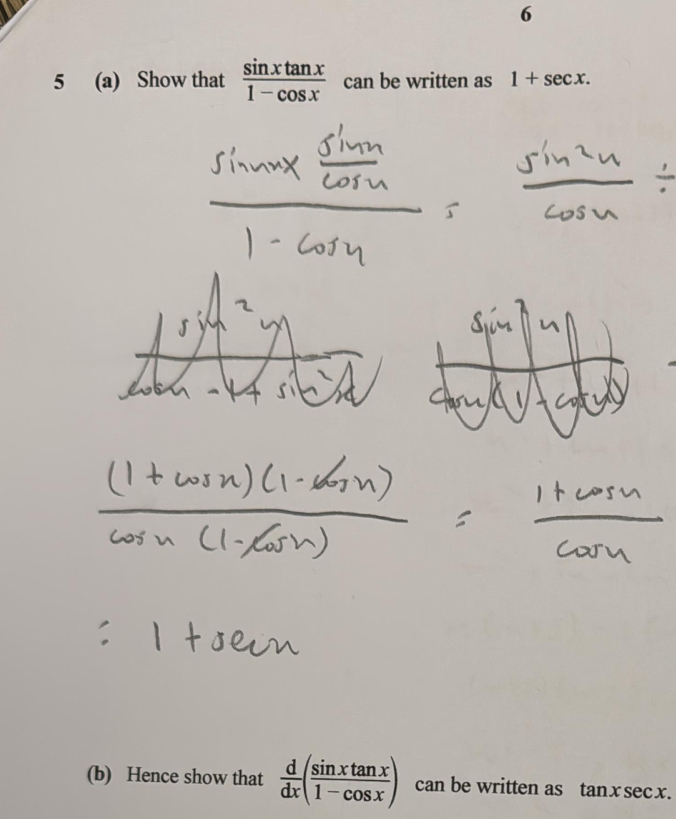 6
5 (a) Show that sin x tan x / 1 − cos x can be written as 1 + sec x.
sin x × sin x / cos x / 1 - cos x = sin²x / cos x ÷
(1 + cos x)(1 - cos x) / cos x (1 - cos x) = 1 + cos x / cos x
= 1 + sec x
(b) Hence show that d/dx (sin x tan x / 1 − cos x) can be written as tan x sec x.